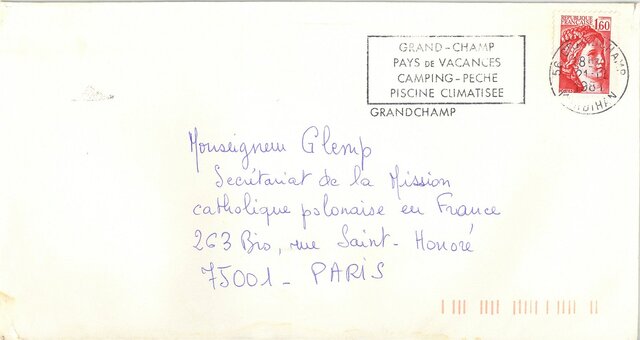 REPUBLIQUE FRANCAISE
1,60
GRAND-CHAMP
PAYS DE VACANCES
CAMPING-PECHE
PISCINE CLIMATISEE
GRANDCHAMP
56
MORBIHAN
Monseigneur Glemp
Secrétariat de la Mission
catholique polonaise en France
263 Bis, rue Saint-Honoré
75001 - PARIS